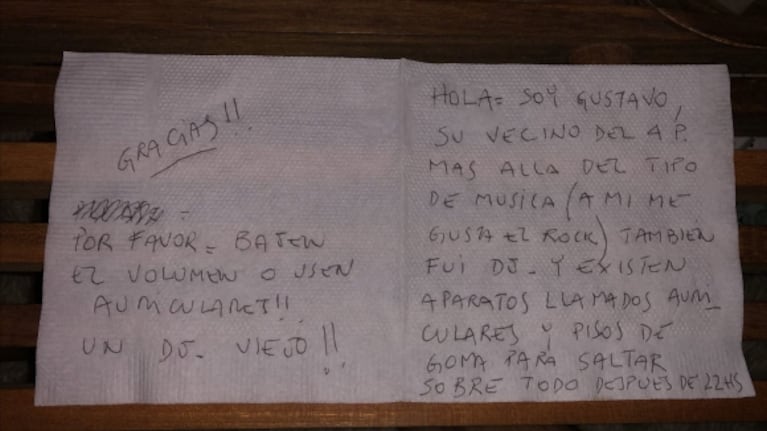 GRACIAS!!
POR FAVOR = BAJEN
EL VOLUMEN O USEN
AURICULARES!!
UN DJ. VIEJO!!
HOLA = SOY GUSTAVO,
SU VECINO DEL 4 P.
MAS ALLA DEL TIPO
DE MUSICA (A MI ME
GUSTA EL ROCK) TAMBIEN
FUI DJ. Y EXISTEN
APARATOS LLAMADOS AURI_
CULARES Y PISOS DE
GOMA PARA SALTAR
SOBRE TODO DESPUES DE 22HS